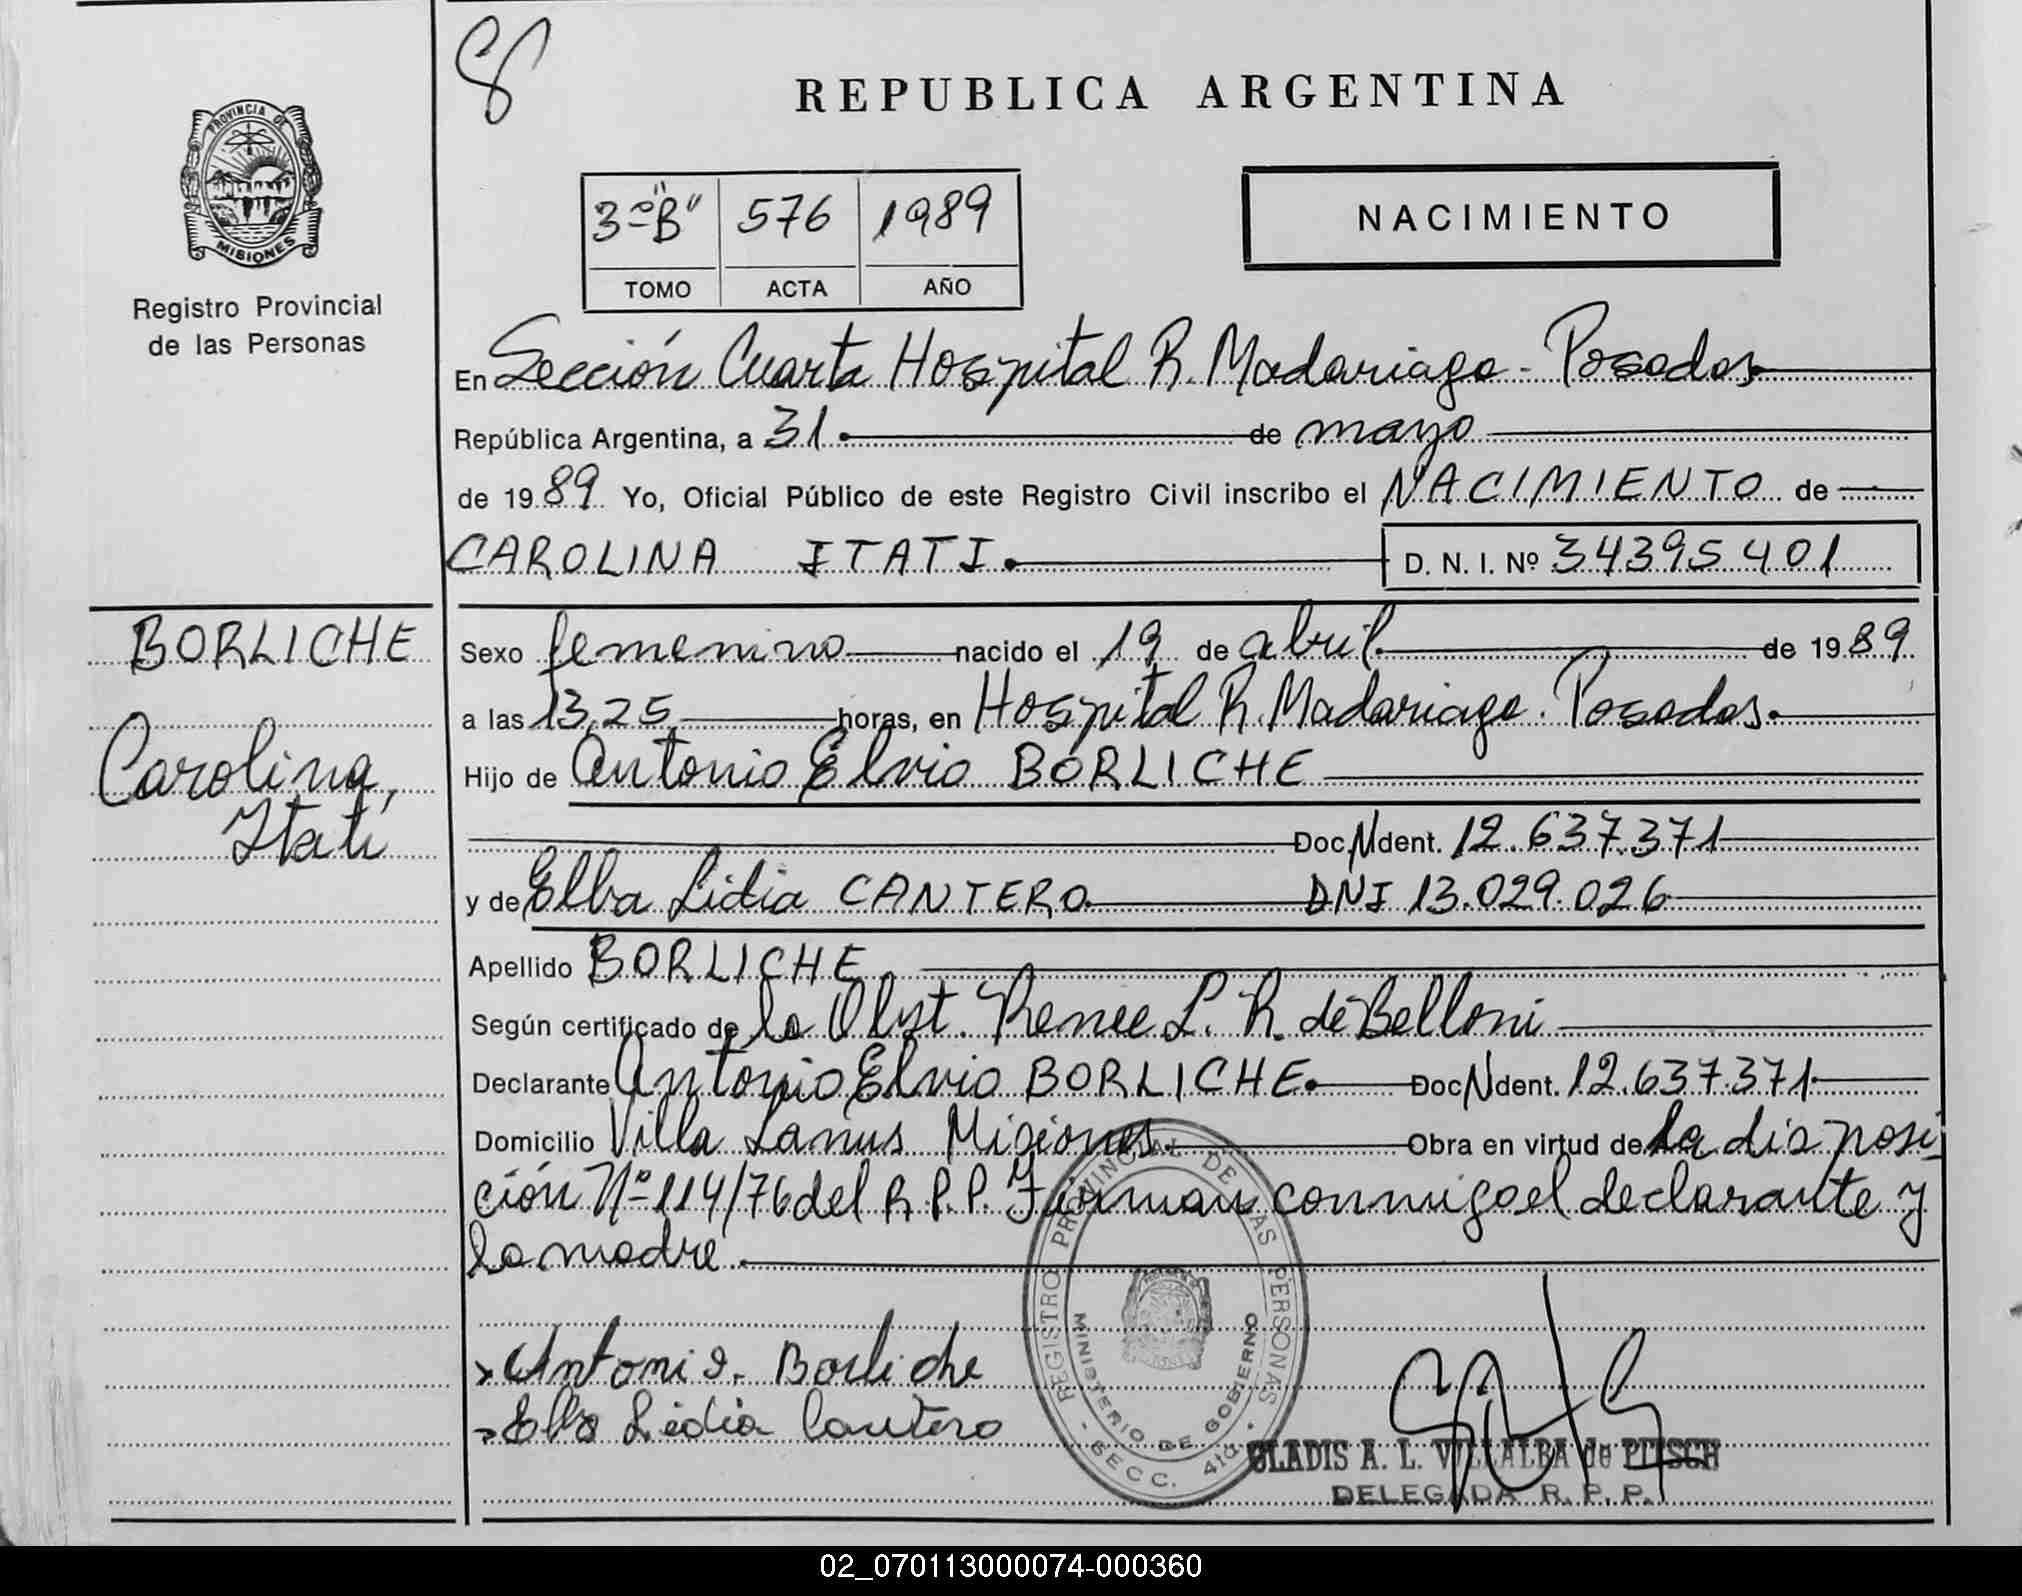 8
REPUBLICA ARGENTINA
PROVINCIA DE
MISIONES
Registro Provincial
de las Personas
3º "B" 576 1989
TOMO ACTA AÑO
NACIMIENTO
En Sección Cuarta Hospital R. Madariaga - Posadas
República Argentina, a 31 de mayo
de 1989 Yo, Oficial Público de este Registro Civil inscribo el NACIMIENTO de
CAROLINA ITATI. D. N. I. Nº 34395401
BORLICHE
Carolina,
Itatí
Sexo femenino nacido el 19 de abril de 1989
a las 13,25 horas, en Hospital R. Madariaga. Posadas.
Hijo de Antonio Elvio BORLICHE
Doc Ident. 12.637.371
y de Elba Lidia CANTERO DNI 13.029.026
Apellido BORLICHE
Según certificado de la Obst. Renee L. R. de Belloni
Declarante Antonio Elvio BORLICHE. Doc Ident. 12.637.371
Domicilio Villa Lanus Misiones. Obra en virtud de la disposi
ción Nº 114/76 del R.P.P. Firman conmigo el declarante y
la madre.
Antonio. Borliche
Elba Lidia Cantero
REGISTRO PROVINCIAL DE LAS PERSONAS
MINISTERIO DE GOBIERNO
SECC. 4ta.
GLADIS A. L. VILLALBA de PITSCH
DELEGADA R. P. P.
02_070113000074-000360